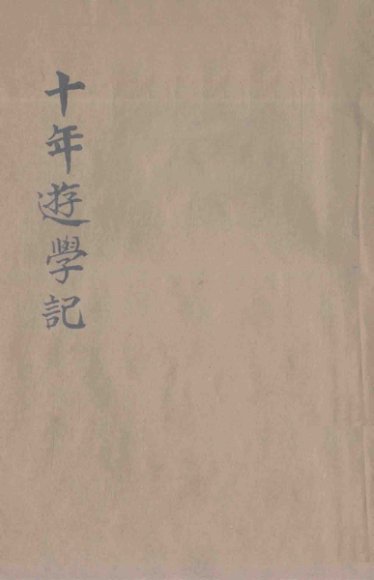 十年遊學記